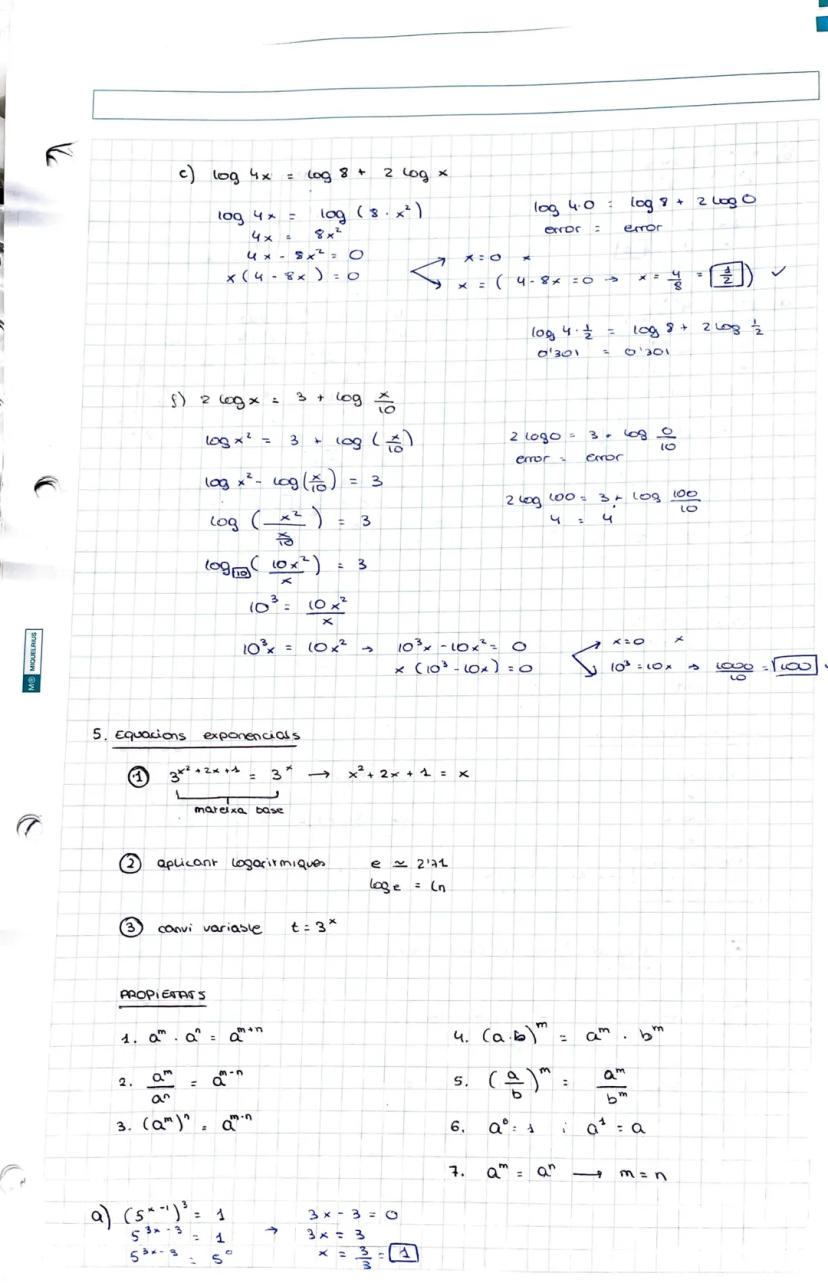 c) log 4x = log 8 + 2 log x
log 4x = log (8 · x²)
4x = 8x²
4x - 8x² = 0
x (4 - 8x) = 0
x = 0 x
x = ( 4 - 8x = 0 → x = 4/8 = 1/2 ) ✓
log 4·0 = log 8 + 2 log 0
error = error
log 4 · 1/2 = log 8 + 2 log 1/2
0'301 = 0'301
f) 2 log x = 3 + log x/10
log x² = 3 + log (x/10)
log x² - log (x/10) = 3
log ( x² / x/10 ) = 3
log 10 ( 10x² / x ) = 3
10³ = 10x² / x
10³x = 10x² → 10³x - 10x² = 0
x (10³ - 10x) = 0
x = 0 x
10³ = 10x → 1000/10 = 100
2 log 0 = 3 + log 0/10
error = error
2 log 100 = 3 + log 100/10
4 = 4
M® MIQUELRIUS
5. Equacions exponencials
① 3^(x² + 2x + 1) = 3^x → x² + 2x + 1 = x
mateixa base
② aplicant logaritmiques e ≃ 2'71
log e = ln
③ canvi variable t = 3^x
PROPIETATS
1. a^m · a^n = a^(m+n)
2. a^m / a^n = a^(m-n)
3. (a^m)^n = a^(m·n)
4. (a·b)^m = a^m · b^m
5. (a/b)^m = a^m / b^m
6. a⁰ = 1 i a¹ = a
7. a^m = a^n → m = n
a) (5^(x-1))³ = 1
5^(3x-3) = 1
5^(3x-3) = 5⁰
→ 3x - 3 = 0
3x = 3
x = 3/3 = 1